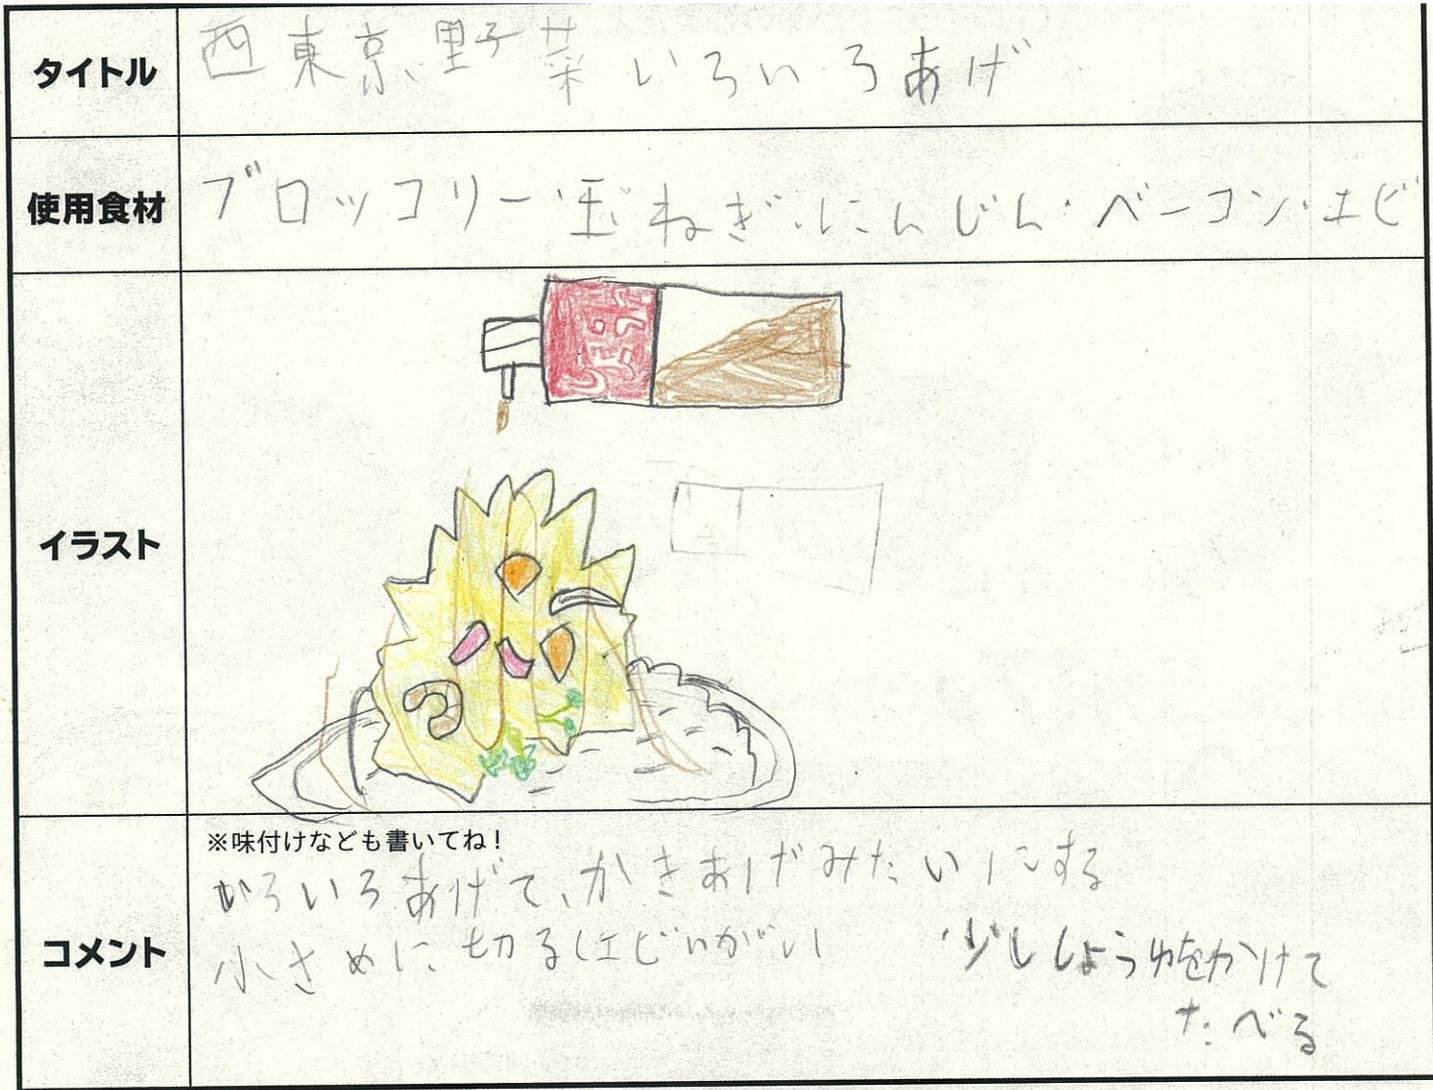 タイトル
西東京、野菜いろいろあげ
使用食材
ブロッコリー・玉ねぎ・にんじん・ベーコン・エビ
イラスト
しょうゆ
コメント
※味付けなども書いてね!
いろいろあげて、かきあげみたいにする
小さめに切る(エビいがい)
・少ししょうゆをかけて
たべる